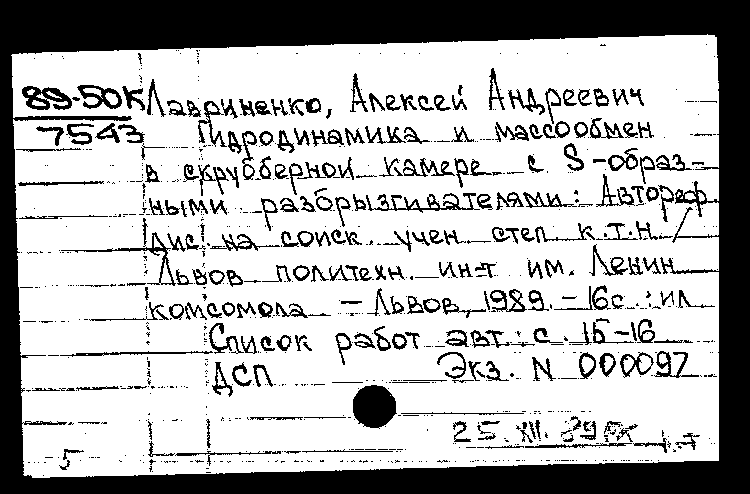 89-50К Лавриненко, Алексей Андреевич
7543 Гидродинамика и массообмен
в скрубберной камере с S-образ-
ными разбрызгивателями: Автореф.
дис. на соиск. учен. степ. к.т.н. /
Львов. политехн. ин-т им. Ленин.
комсомола. - Львов, 1989. - 16с.: ил
Список работ авт.: с. 15-16
ДСП Экз. N 000097
25. XII. 89
5